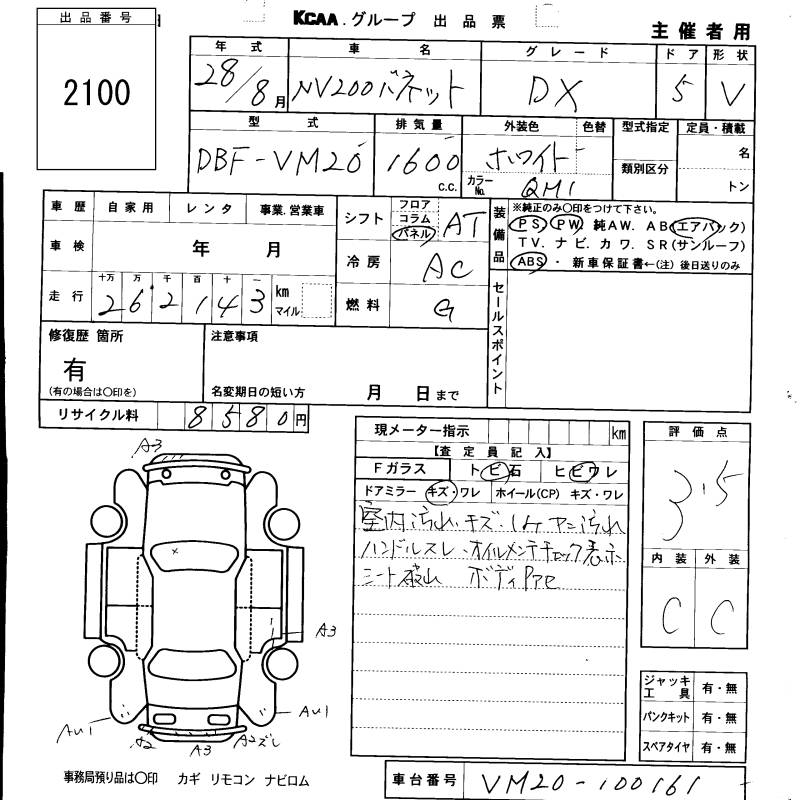 出品番号
2100
KCAA.グループ 出品票
主催者用
年式 車名 グレード ドア 形状
28/8月 NV200バネット DX 5 V
型式 排気量 外装色 色替 型式指定 定員・積載
DBF-VM20 1600 c.c. ホワイト 名
カラーNo. QM1 類別区分 トン
車歴 自家用 レンタ 事業.営業車
車検 年 月
走行 十万 万 千 百 十 一
262143 km マイル
シフト フロア コラム パネル AT
冷房 AC
燃料 G
装備品
※純正のみ〇印をつけて下さい。
PS PW 純AW. AB(エアバック)
TV. ナビ. カワ. SR(サンルーフ)
ABS ・ 新車保証書←(注) 後日送りのみ
セールスポイント
修復歴 箇所
有
(有の場合は〇印を)
注意事項
名変期日の短い方 月 日まで
リサイクル料 8580円
現メーター指示 km
【査定員記入】
Fガラス トビ石 ヒビワレ
ドアミラー キズ・ワレ ホイール(CP) キズ・ワレ
室内汚れ・キズ・コケ ヤニ汚れ
ハンドルスレ・オイルメンテチェック表示
シート破れ ボディ
評価点
3.5
内装 外装
C C
A3
A3
AU1
AU1
A2
A3
A2ズレ
ジャッキ工具 有・無
パンクキット 有・無
スペアタイヤ 有・無
事務局預り品は〇印 カギ リモコン ナビロム
車台番号 VM20-100161